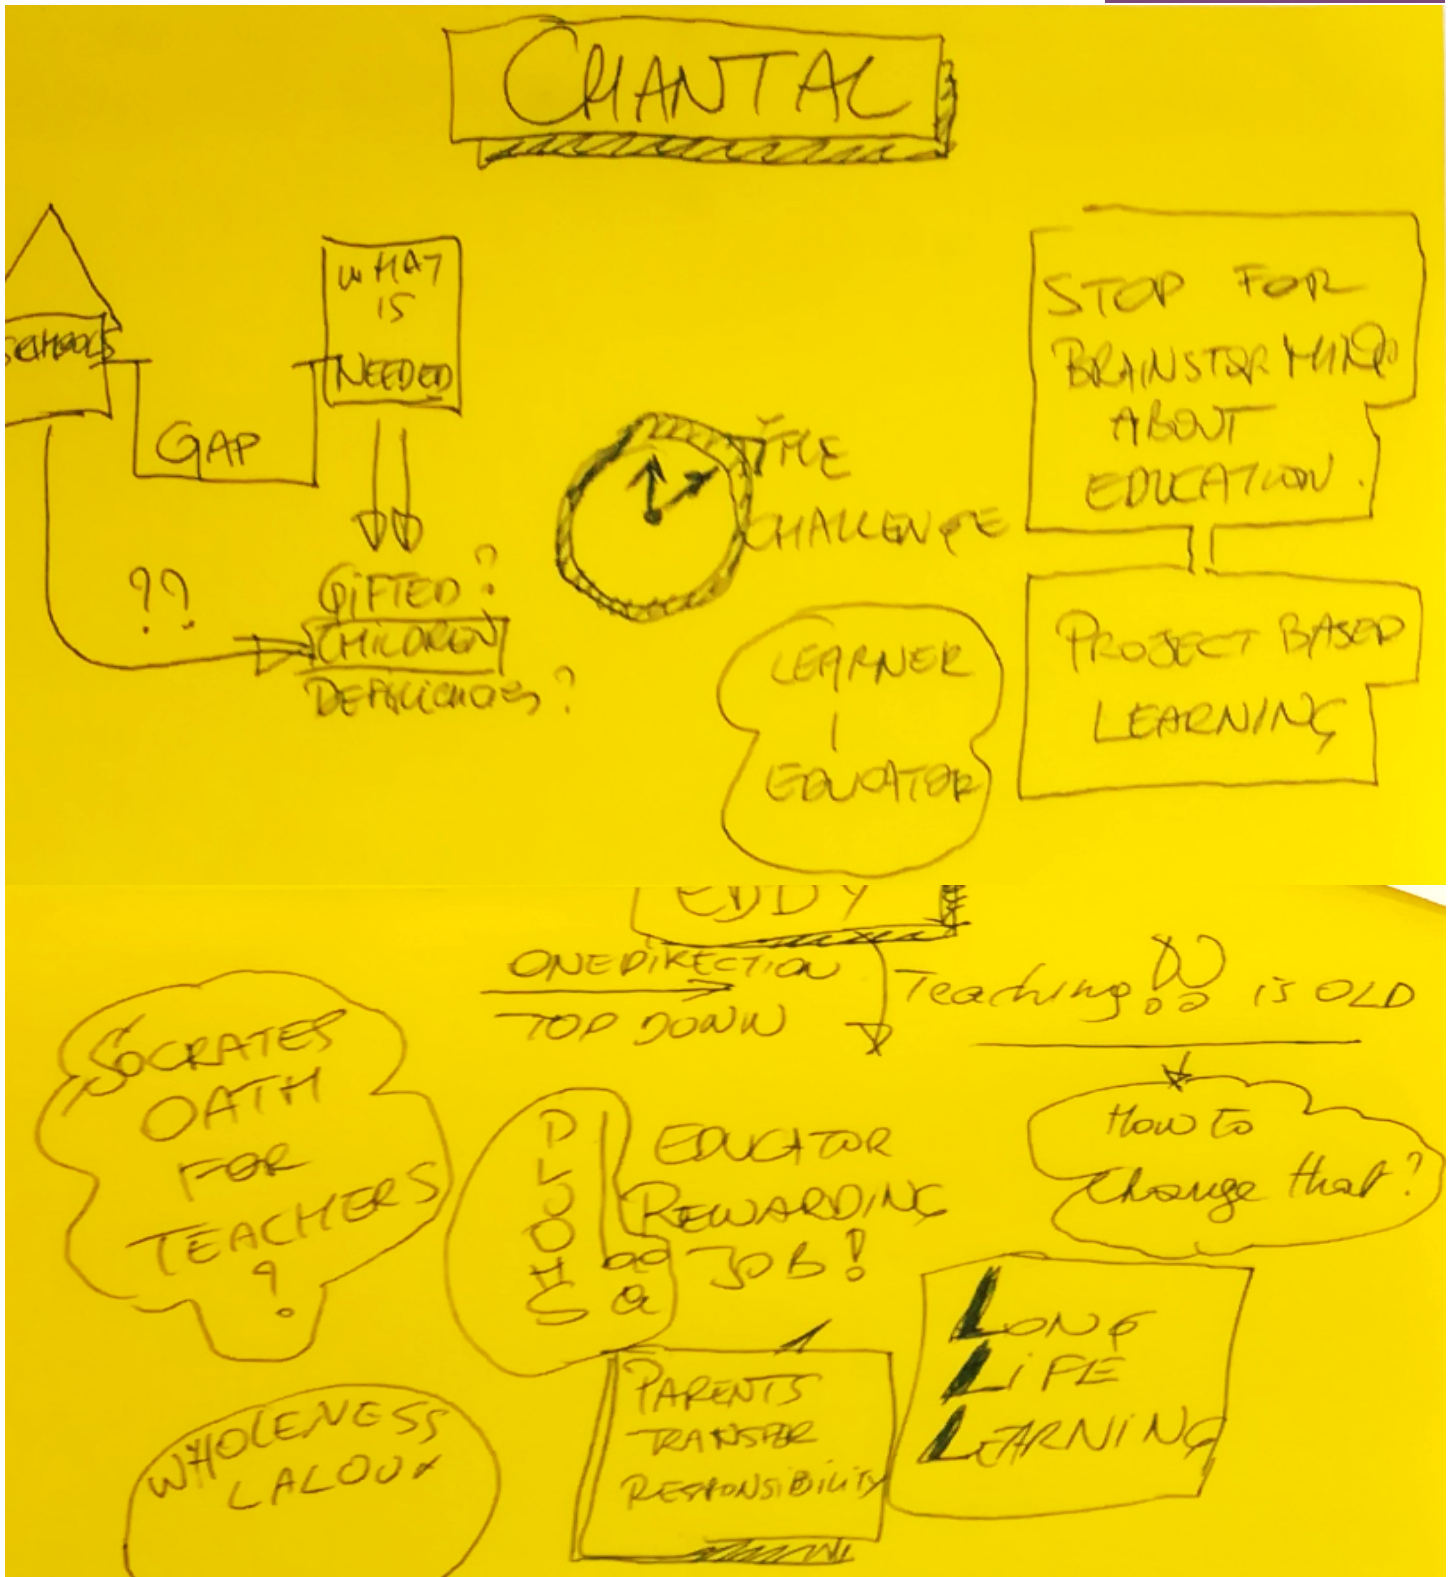 CHANTAL
SCHOOLS
GAP
WHAT
IS
NEEDED
??
GIFTED?
CHILDREN
DEFICIENCIES?
TIME
CHALLENGE
LEARNER
EDUCATOR
STOP FOR
BRAINSTORMING
ABOUT
EDUCATION.
PROJECT BASED
LEARNING
EDDY
ONE DIRECTION
TOP DOWN
Teaching!? is OLD
How to
Change that?
SOCRATES
OATH
FOR
TEACHERS
?
EDUCATOR
REWARDING
JOB!
PARENTS
TRANSFER
RESPONSIBILITY
LONG
LIFE
LEARNING
WHOLENESS
LALOUX